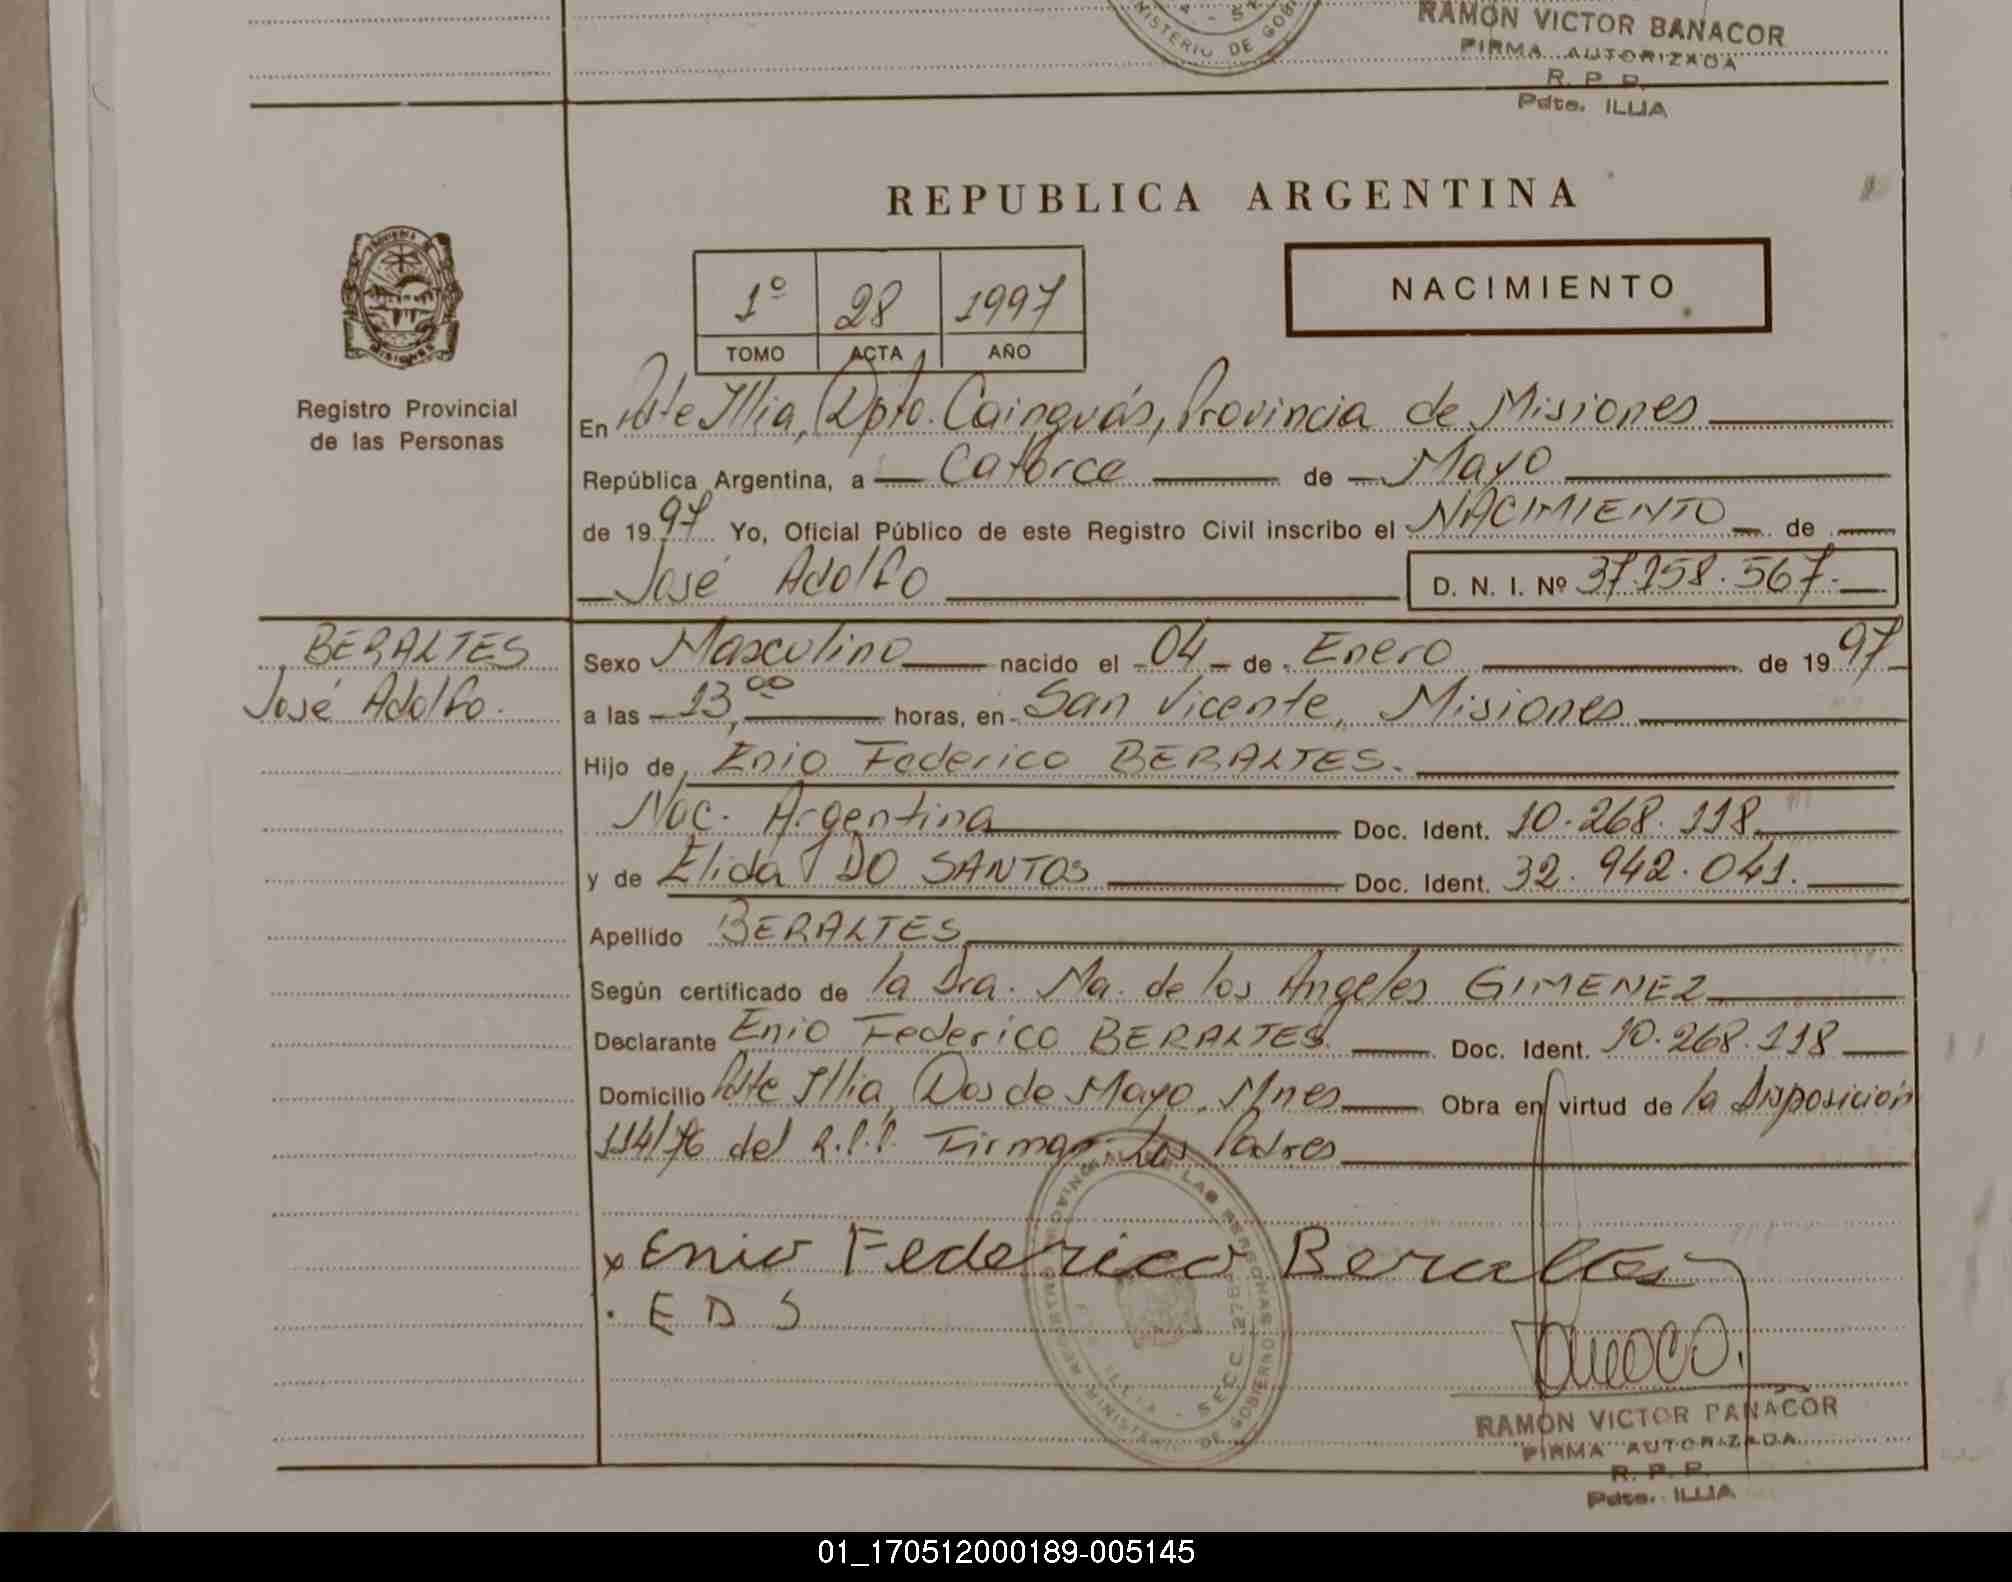 MINISTERIO DE GOB
RAMON VICTOR BANACOR
FIRMA AUTORIZADA
R. P. P.
Pdte. ILLIA
REPUBLICA ARGENTINA
1º 28 1997
TOMO ACTA AÑO
NACIMIENTO
Registro Provincial
de las Personas
En Pdte Illia, Dpto. Cainguás, Provincia de Misiones
República Argentina, a Catorce de Mayo
de 1997 Yo, Oficial Público de este Registro Civil inscribo el NACIMIENTO de
José Adolfo D. N. I. Nº 37.158.567.
BERALTES
José Adolfo.
Sexo Masculino nacido el 04 de Enero de 1997
a las 13,00 horas, en San Vicente, Misiones
Hijo de Enio Federico BERALTES.
Nac. Argentina Doc. Ident. 10.268.118
y de Elida DO SANTOS Doc. Ident. 32.942.041.
Apellido BERALTES
Según certificado de la Dra. Ma. de los Angeles GIMENEZ
Declarante Enio Federico BERALTES. Doc. Ident. 10.268.118
Domicilio Pdte Illia, Dos de Mayo, Mnes Obra en virtud de la Disposición
114/76 del R.P.P. Firman los Padres
x Enio Federico Beraltes
. E D S
RAMON VICTOR BANACOR
FIRMA AUTORIZADA
R. P. P.
Pdte. ILLIA
01_170512000189-005145